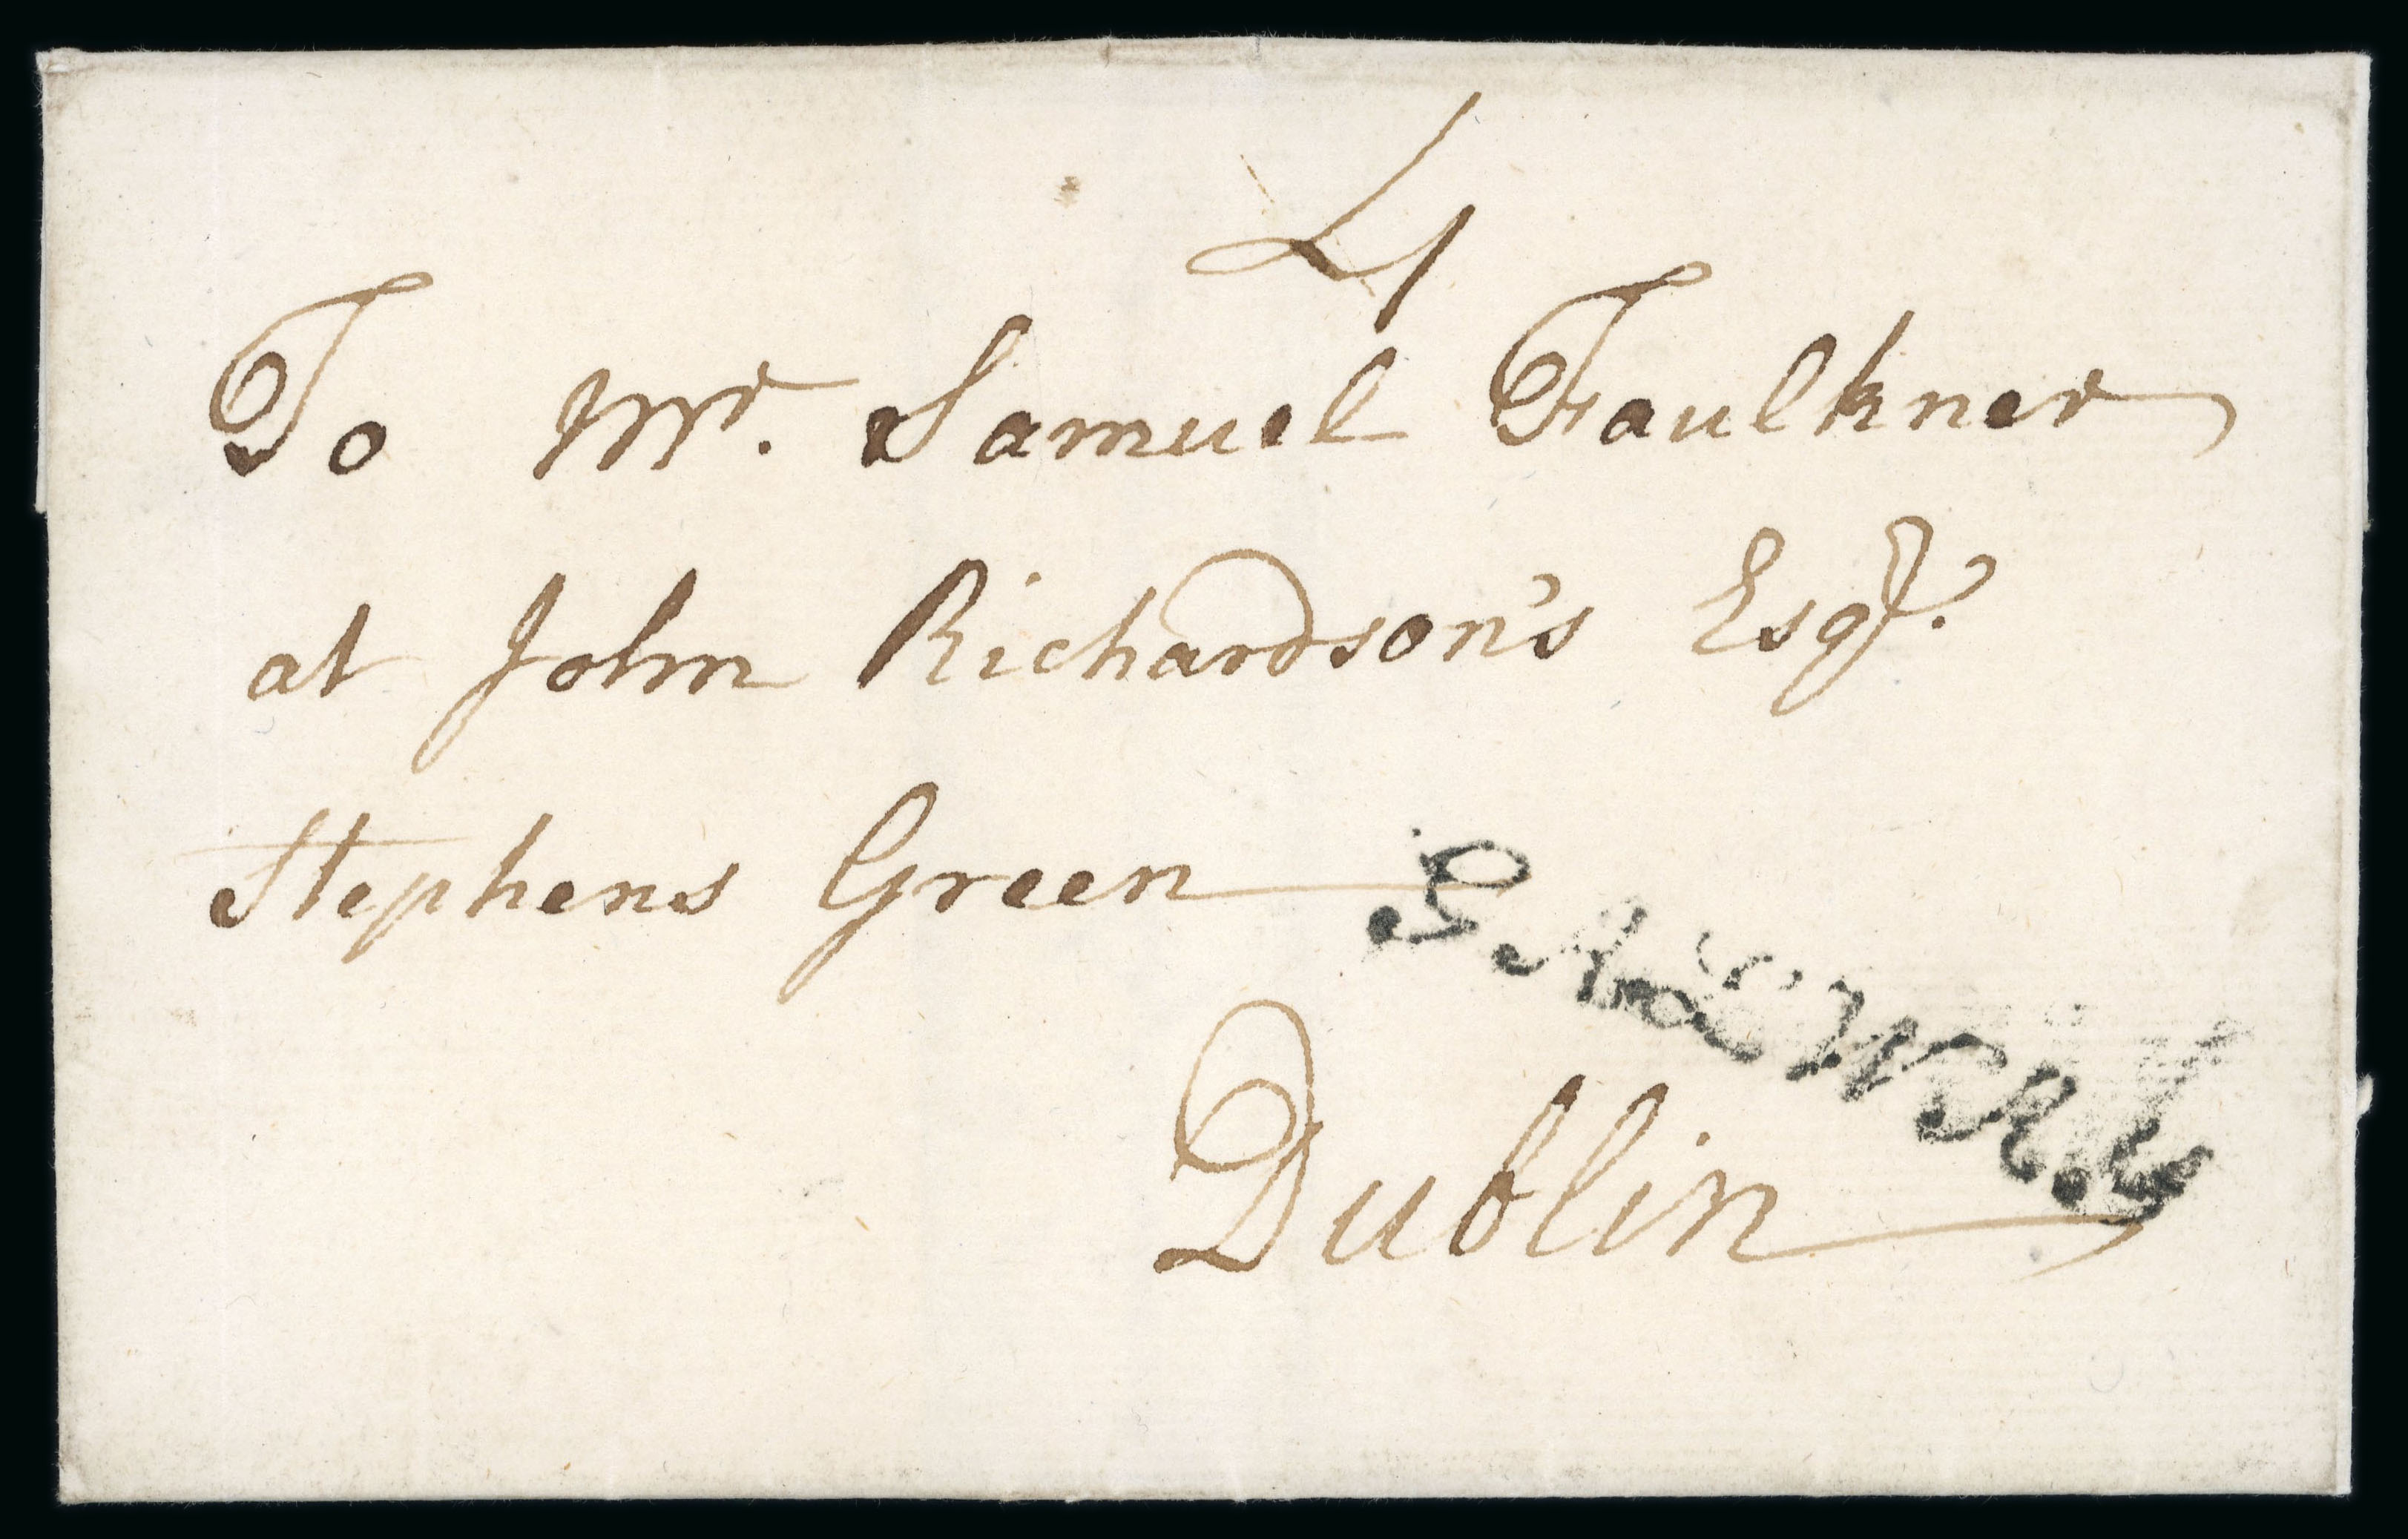 4
To Mr. Samuel Faulkner
at John Richardson's Esqr.
Stephens Green
Dublin